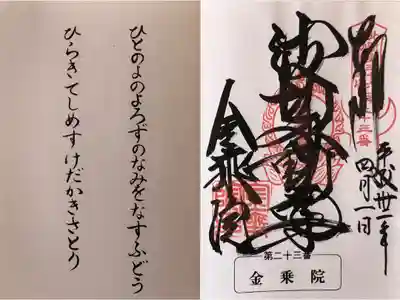 ひとのよのよろずのなみをなすふどう
ひらきてしめすけだかきさとり
奉拝
平成卅一年
四月一日
波切不動尊
金乗院
第二十三番
金乗院